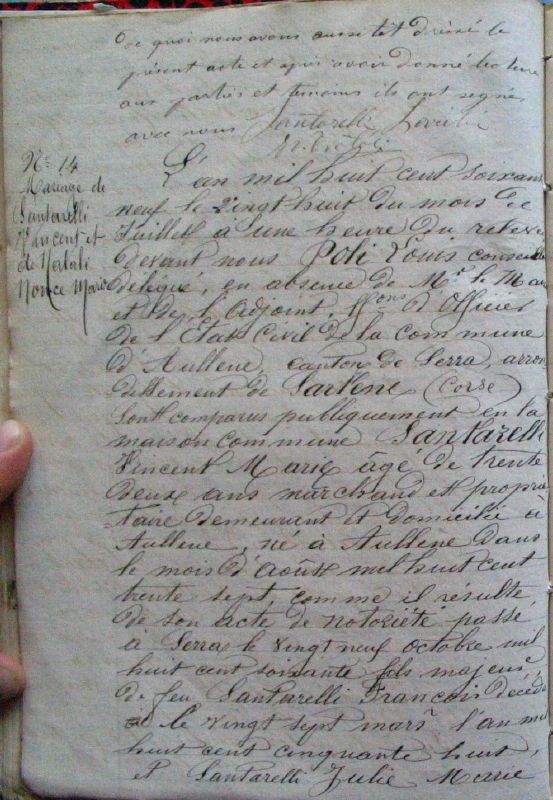 De quoi nous avons aussitôt dressé le
présent acte et après avoir donné lecture
aux parties et témoins ils ont signé
avec nous Santarelli
N° 14
Mariage de
Santarelli
Vincent et
de Natali
Nonce Marie
L'an mil huit cent soixan
neuf le vingt huit du mois de
Juillet à une heure du relevé
devant nous Poli Louis conseille
délégué, en absence de Mr le Mai
et de l'adjoint, ffons d'Officier
de l'Etat Civil de la commune
d'Aullene, canton de Serra, arron
dissement de Sartene (Corse)
sont comparus publiquement en la
maison commune Santarelli
Vincent Marie âgé de trente
deux ans marchand et proprié
taire demeurant et domicilié à
Aullene, né à Aullene dans
le mois d'août mil huit cent
trente sept, comme il résulte
de son acte de notoriété passé
à Serra le vingt neuf octobre mil
huit cent soixante fils majeur
de feu Santarelli François décédé
le vingt sept mars l'an mil
huit cent cinquante huit,
et Santarelli Julie Marie